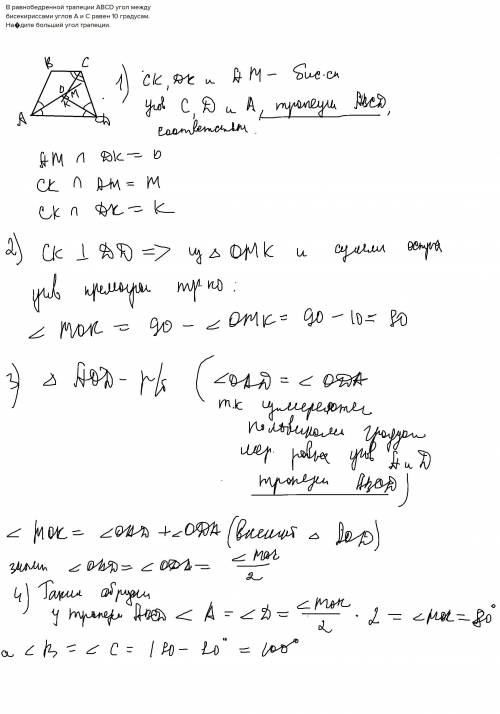 В равнобедренной трапеции ABCD угол между
бисекириссами углов A и C равен 10 градусам.
На�дите больший угол трапеции.
B C
O M
K
A D
1) CK, DK и AM – бис-сы
углов C, D и A, трапеции ABCD,
соответствен.
AM ∩ DK = O
CK ∩ AM = M
CK ∩ DK = K
2) CK ⊥ DO => из △ OMK и суммы острых
углов :
∠ MOK = 90 – ∠ OMK = 90 – 10 = 80
3) △ AOD – р/б (∠OAD = ∠ODA
тк измеряются
половинами градусн
мер равных углов A и D
трапеции ABCD)
∠ MOK = ∠OAD + ∠ODA (внешний △ AOD)
значит ∠OAD = ∠ODA = ∠MOK/2
4) Таким образом
у трапеции ABCD ∠ A = ∠ D = ∠MOK/2 · 2 = ∠MOK = 80°
а ∠ B = ∠ C = 180 – 80° = 100°